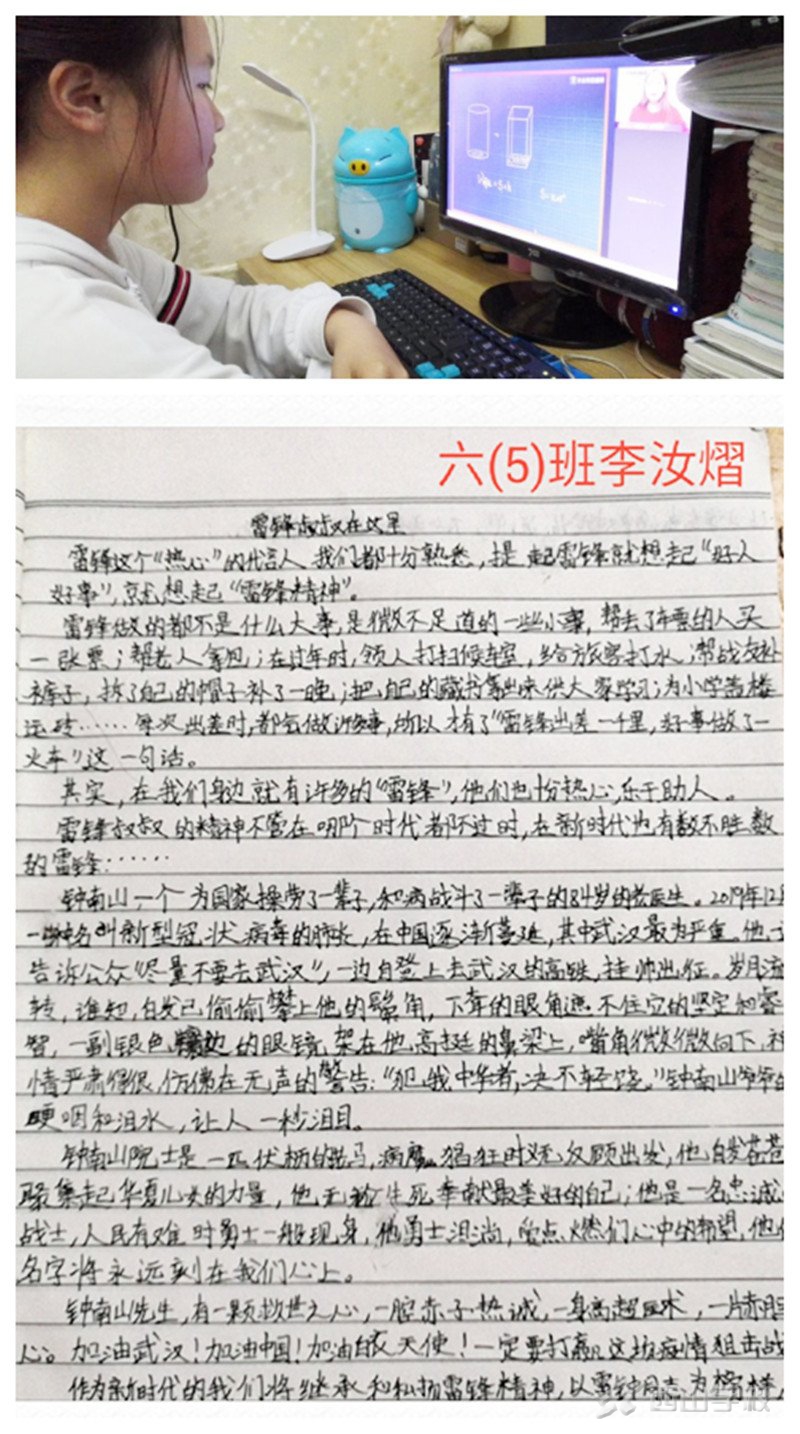 六(5)班李汝熠
雷锋叔叔在这里
雷锋这个“热心”的代言人,我们都十分熟悉,提起雷锋就想起“好人
好事”,就想起“雷锋精神”。
雷锋做的都不是什么大事,是微不足道的一些小事,帮丢了车票的人买
一张票;帮老人拿包;在过年时,领人打扫候车室,给旅客打水;帮战友补
裤子,拆了自己的帽子补了一晚;把自己的藏书拿出来供大家学习;为小学盖楼
运砖……每次出差时,都会做许多事,所以才有了“雷锋出差一千里,好事做了一
火车”这一句话。
其实,在我们身边就有许多的“雷锋”,他们也十分热心,乐于助人。
雷锋叔叔的精神不管在哪个时代都不过时,在新时代也有数不胜数
的雷锋……
钟南山一个为国家操劳了一辈子,和病战斗了一辈子的84岁的老医生。2019年12月
一种名叫新型冠状病毒的肺炎,在中国逐渐蔓延,其中武汉最为严重。他一
告诉公众“尽量不要去武汉”,一边自登上去武汉的高铁,挂帅出征。岁月流
转,谁知,白发已偷偷攀上他的鬓角,下垂的眼角遮不住它的坚定和睿
智,一副银色镶边的眼镜架在他高挺的鼻梁上,嘴角微微向下,神
情严肃得很,仿佛在无声的警告:“犯我中华者,决不轻饶。”钟南山爷爷的
哽咽和泪水,让人一秒泪目。
钟南山院士是一匹伏枥的老马,病魔猖狂时义无反顾出发,他白发苍苍
聚集起华夏儿女的力量,他无论生死奉献最美好的自己;他是一名忠诚
战士,人民有难时勇士一般现身,他勇士泪淌,点燃们心中的希望,他
名字将永远刻在我们心上。
钟南山先生,有一颗救世之心,一腔赤子热诚,一身高超医术,一片赤胆
心。加油武汉!加油中国!加油白衣天使!一定要打赢这场疫情狙击战
作为新时代的我们将继承和弘扬雷锋精神,以雷锋同志为榜样,
西山学校